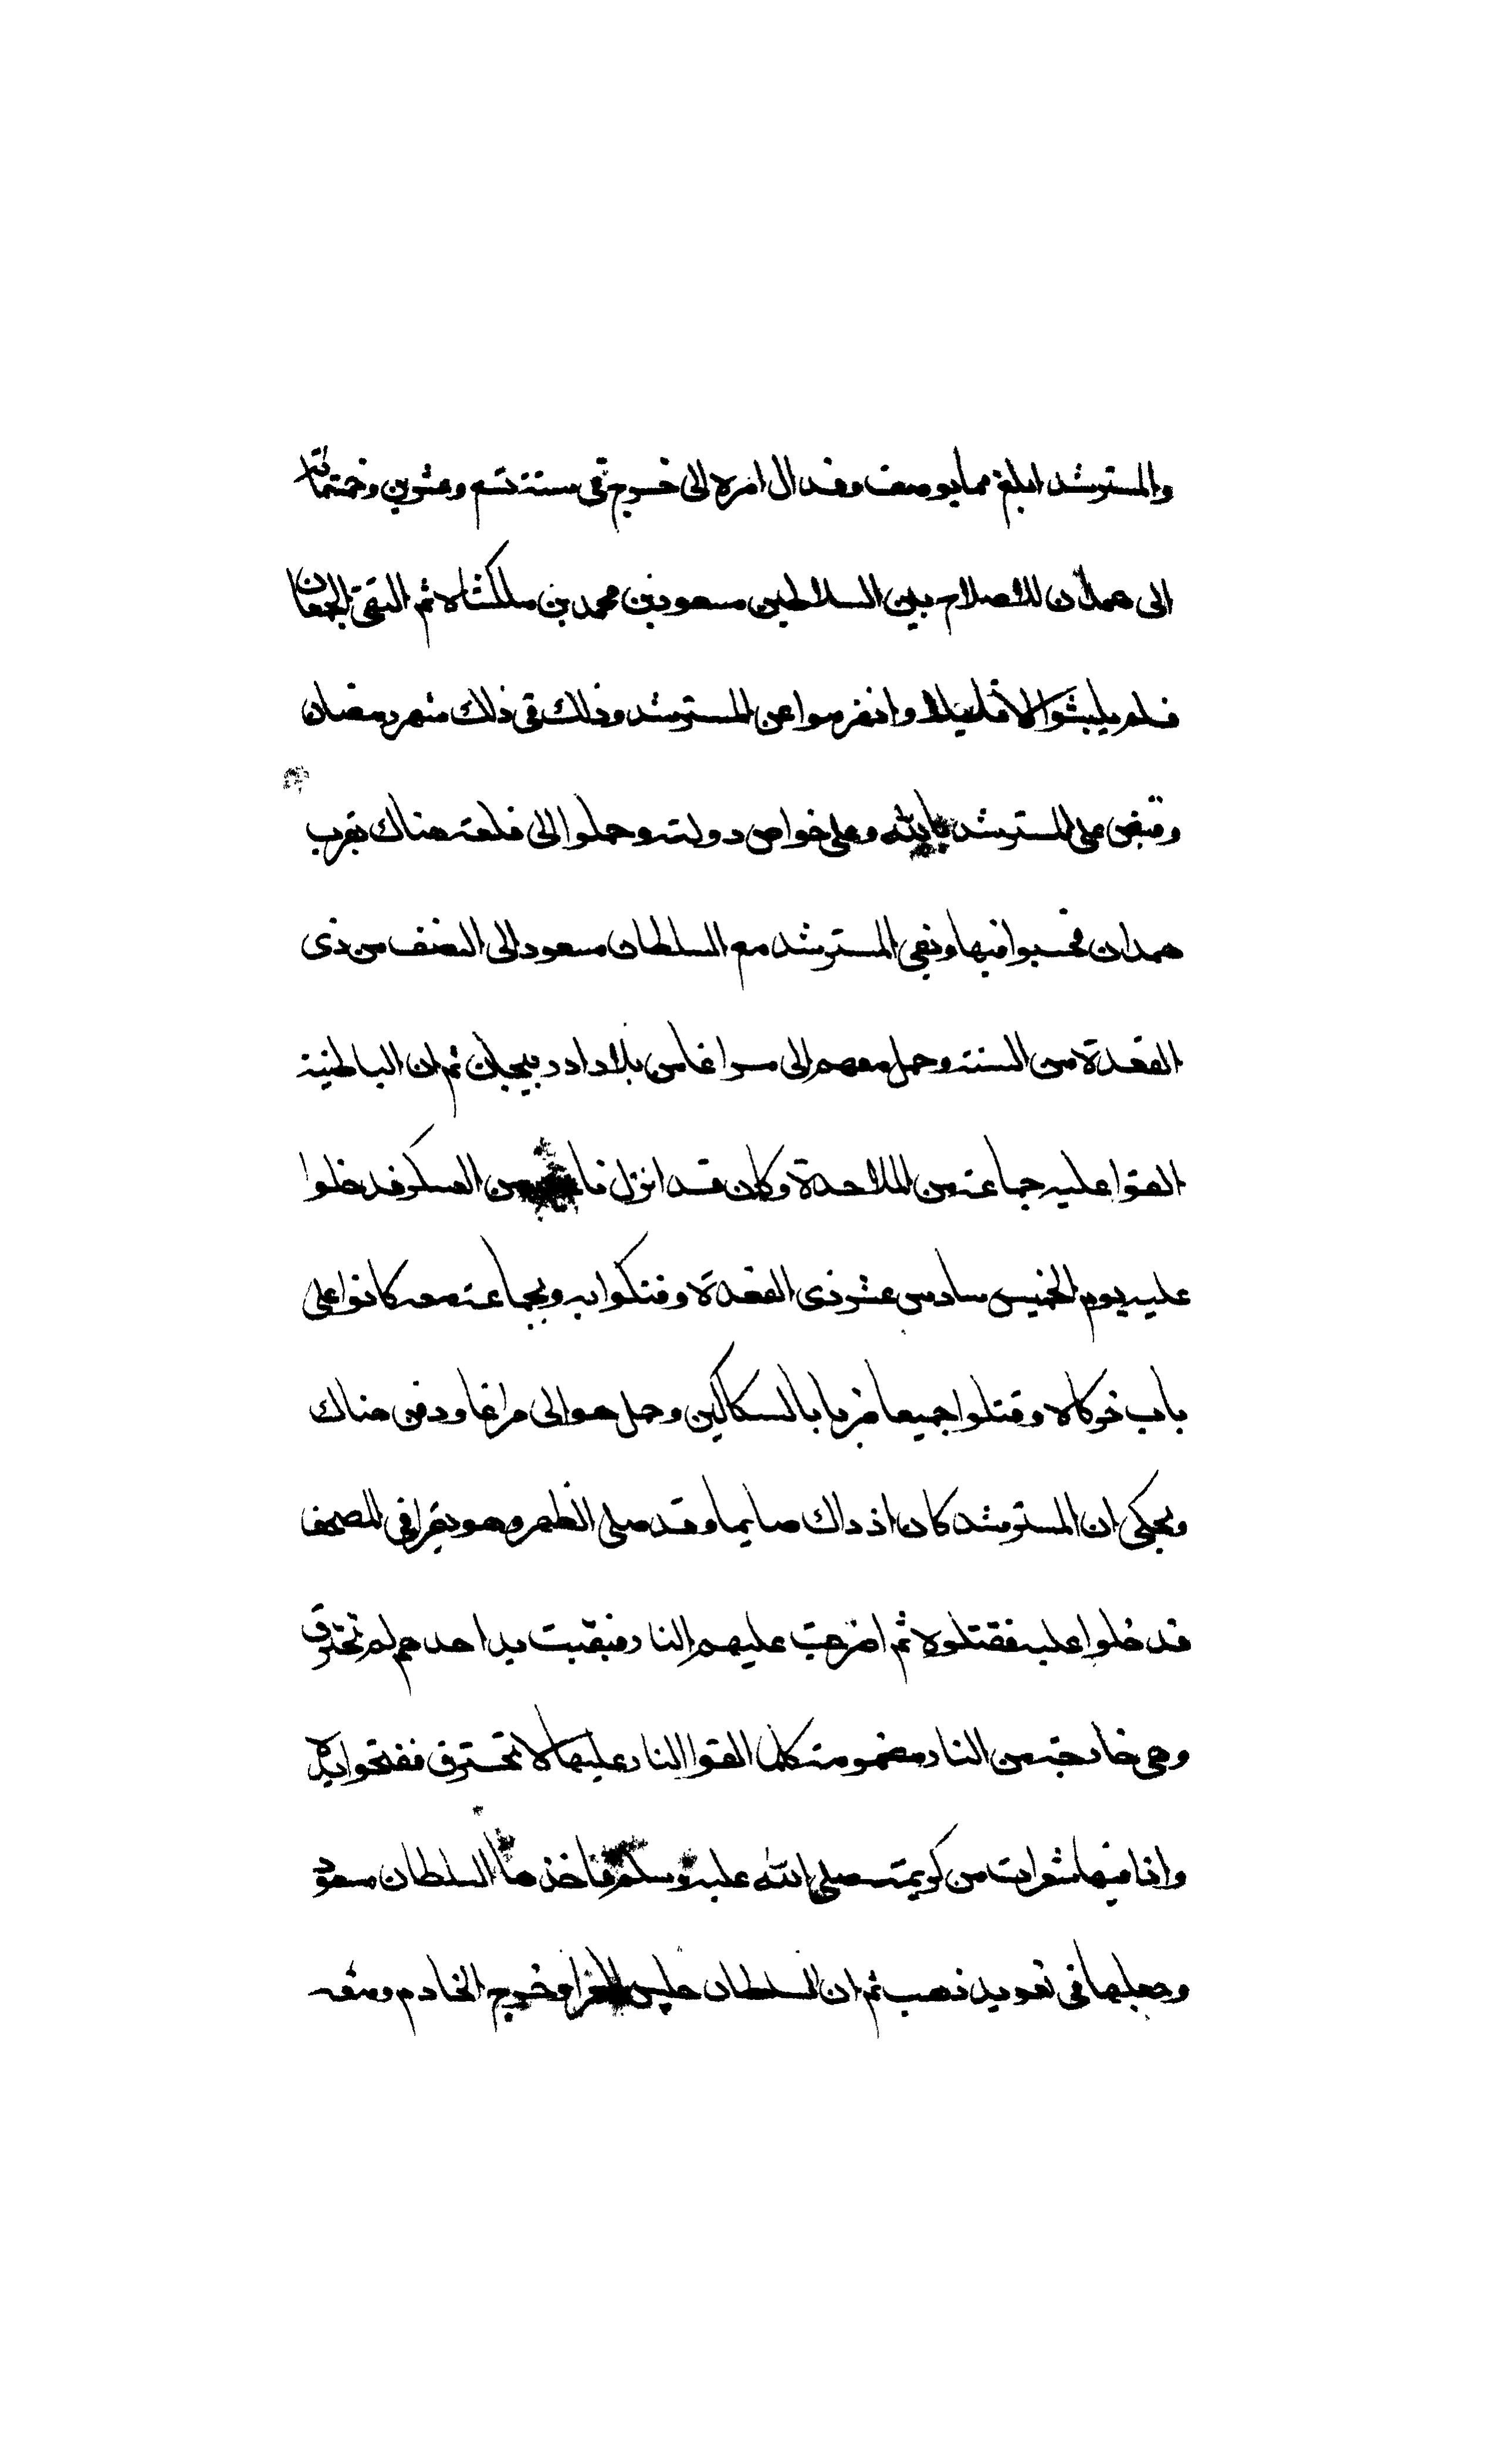 والمسترشد ابلغ مما يوصف وقد ال امره الى خروجه في سنة تسع وعشرين وخمتمائة
الى همدان للاصلاح بين السلاطين مسعود بن محمد بن ملكشاه ثم التقى الجمعان
فلم يلبثوا الا قليلا وانفرموا عن المسترشد وذلك في ذلك شهر رمضان
وقبض على المسترشد بالله وعلى خواص دولته وحملوا الى قلعة هناك بقرب
همدان فحسبوا فيها وبقي المسترشد مع السلطان مسعود الى النصف من ذى
القعدة من السنة وحمل معهم الى مراغا من بلاد ادربيجان ثم ان الباطنية
القوا عليه جماعة من الملاحدة وكان قد انزل نا من العسكر فدخلوا
عليه يوم الخميس سادس عشر ذى القعدة وفتكوا به وبجماعة معه كانوا على
باب خركاه وقتلوا جميعا ضربا بالسكاكين وحمل هو الى مراغا ودفن هناك
ويحكى ان المسترشد كان اذ داك صايما وقد صلى الظهر وهو يقرا في المصحف
فدخلوا عليه فقتلوه ثم اضرمت عليهم النار فبقيت يد احدهم لم تحترق
وهي خارجة من النار مضمومة كلما القوا النار عليها لا تحترق ففتحوا يده
واذا فيها شعرات من كريمته صلى الله عليه وسلم فاخذها السلطان مسعود
وجعلها في تعويد ذهب ثم ان السلطان جلس للعزا وخرج الخادم ومعه